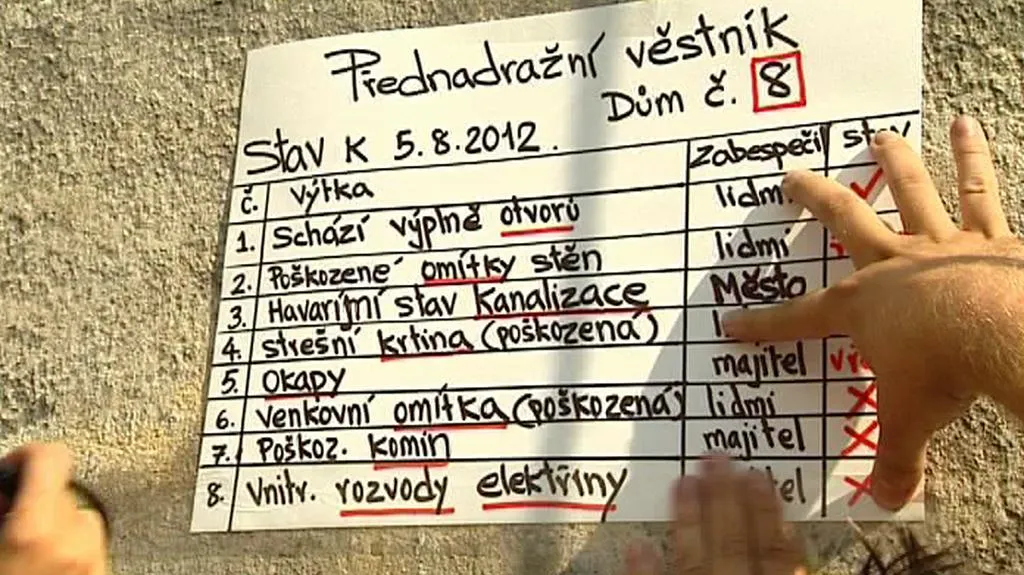 Přednadražní věstník
Dům č. 8
Stav k 5.8.2012.
č. výtka zabespečí stav
1. schází výplně otvorů lidmi
2. Poškozené omítky stěn lidmi
3. Havarijmí stav kanalizace Město
4. střešní krtina (poškozená)
5. okapy majitel
6. venkovní omítka (poškozená) lidmi
7. Poškoz. komín majitel
8. Vnitř. rozvody elektřiny